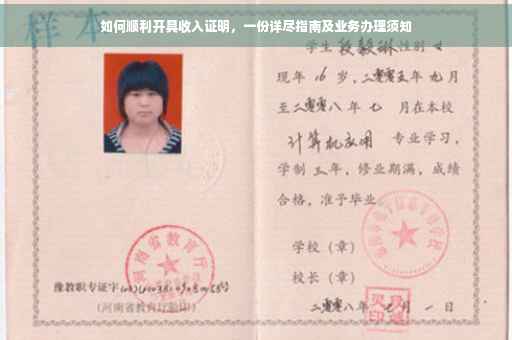 如何顺利开具收入证明，一份详尽指南及业务办理须知
样本
学生 段毅琳 性别 女
现年 16 岁，二零零五年 九月
至二零零八年 七 月在本校
计算机应用 专业学习，
学制 三年，修业期满，成绩
合格，准予毕业。
学校（章）
校长（章）
二零零八年 月 一 日
河南省教育厅
豫教职专证字
（河南省教育厅验印）